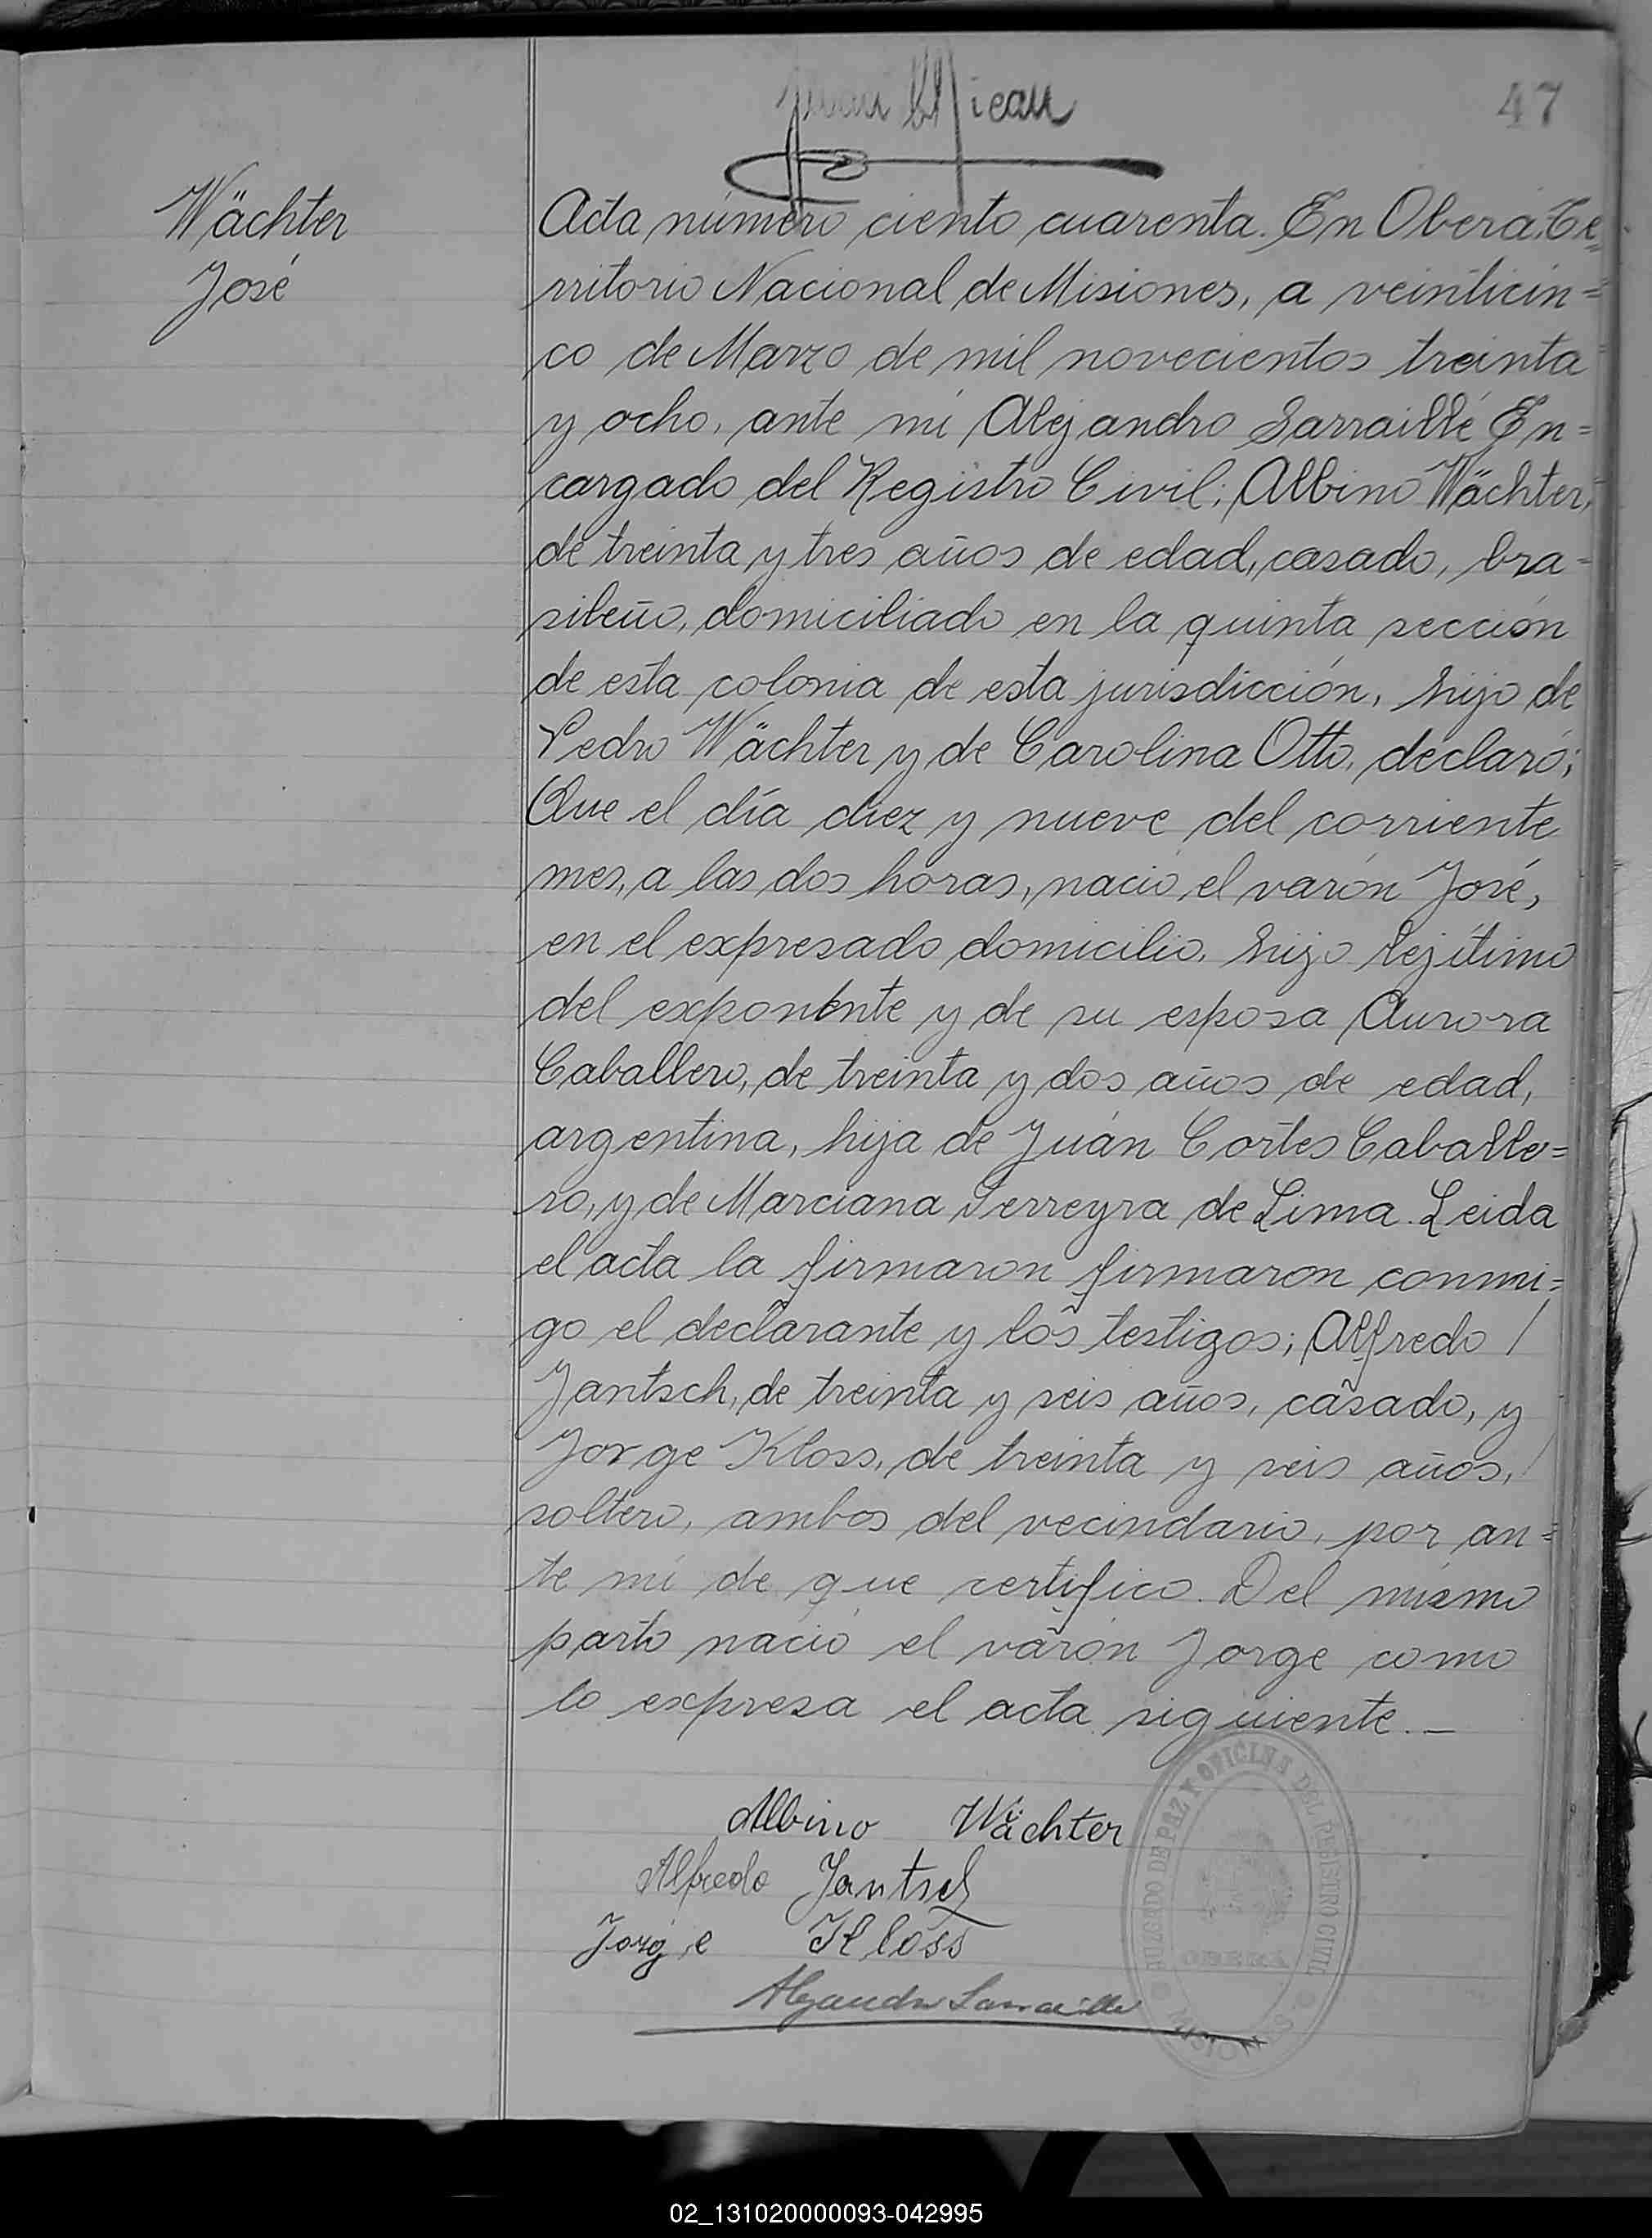 47
Wächter
José
Acta número ciento cuarenta. En Oberá, Te=
rritorio Nacional de Misiones, a veinticin=
co de Marzo de mil novecientos treinta
y ocho, ante mí Alejandro Sarraillé En=
cargado del Registro Civil; Albino Wächter,
de treinta y tres años de edad, casado, bra=
sileño, domiciliado en la quinta sección
de esta colonia de esta jurisdicción, hijo de
Pedro Wächter y de Carolina Otto, declaró;
Que el día diez y nueve del corriente
mes, a las dos horas, nació el varón José,
en el expresado domicilio, hijo lejítimo
del exponente y de su esposa Aurora
Caballero, de treinta y dos años de edad,
argentina, hija de Juán Cortes Caballe=
ro, y de Marciana Ferreyra de Lima. Leida
el acta la firmaron firmaron conmi=
go el declarante y los testigos; Alfredo /
Jantsch, de treinta y seis años, casado, y
Jorge Kloss, de treinta y seis años, /
soltero, ambos del vecindario, por an=
te mí de que certifico. Del mismo
parto nació el varón Jorge como
lo expresa el acta siguiente._
Albino Wächter
Alfredo Jantsch
Jorge Kloss
Alejandro Sarraillé
JUZGADO DE PAZ Y OFICINA DEL REGISTRO CIVIL
OBERÁ
MISIONES
02_131020000093-042995